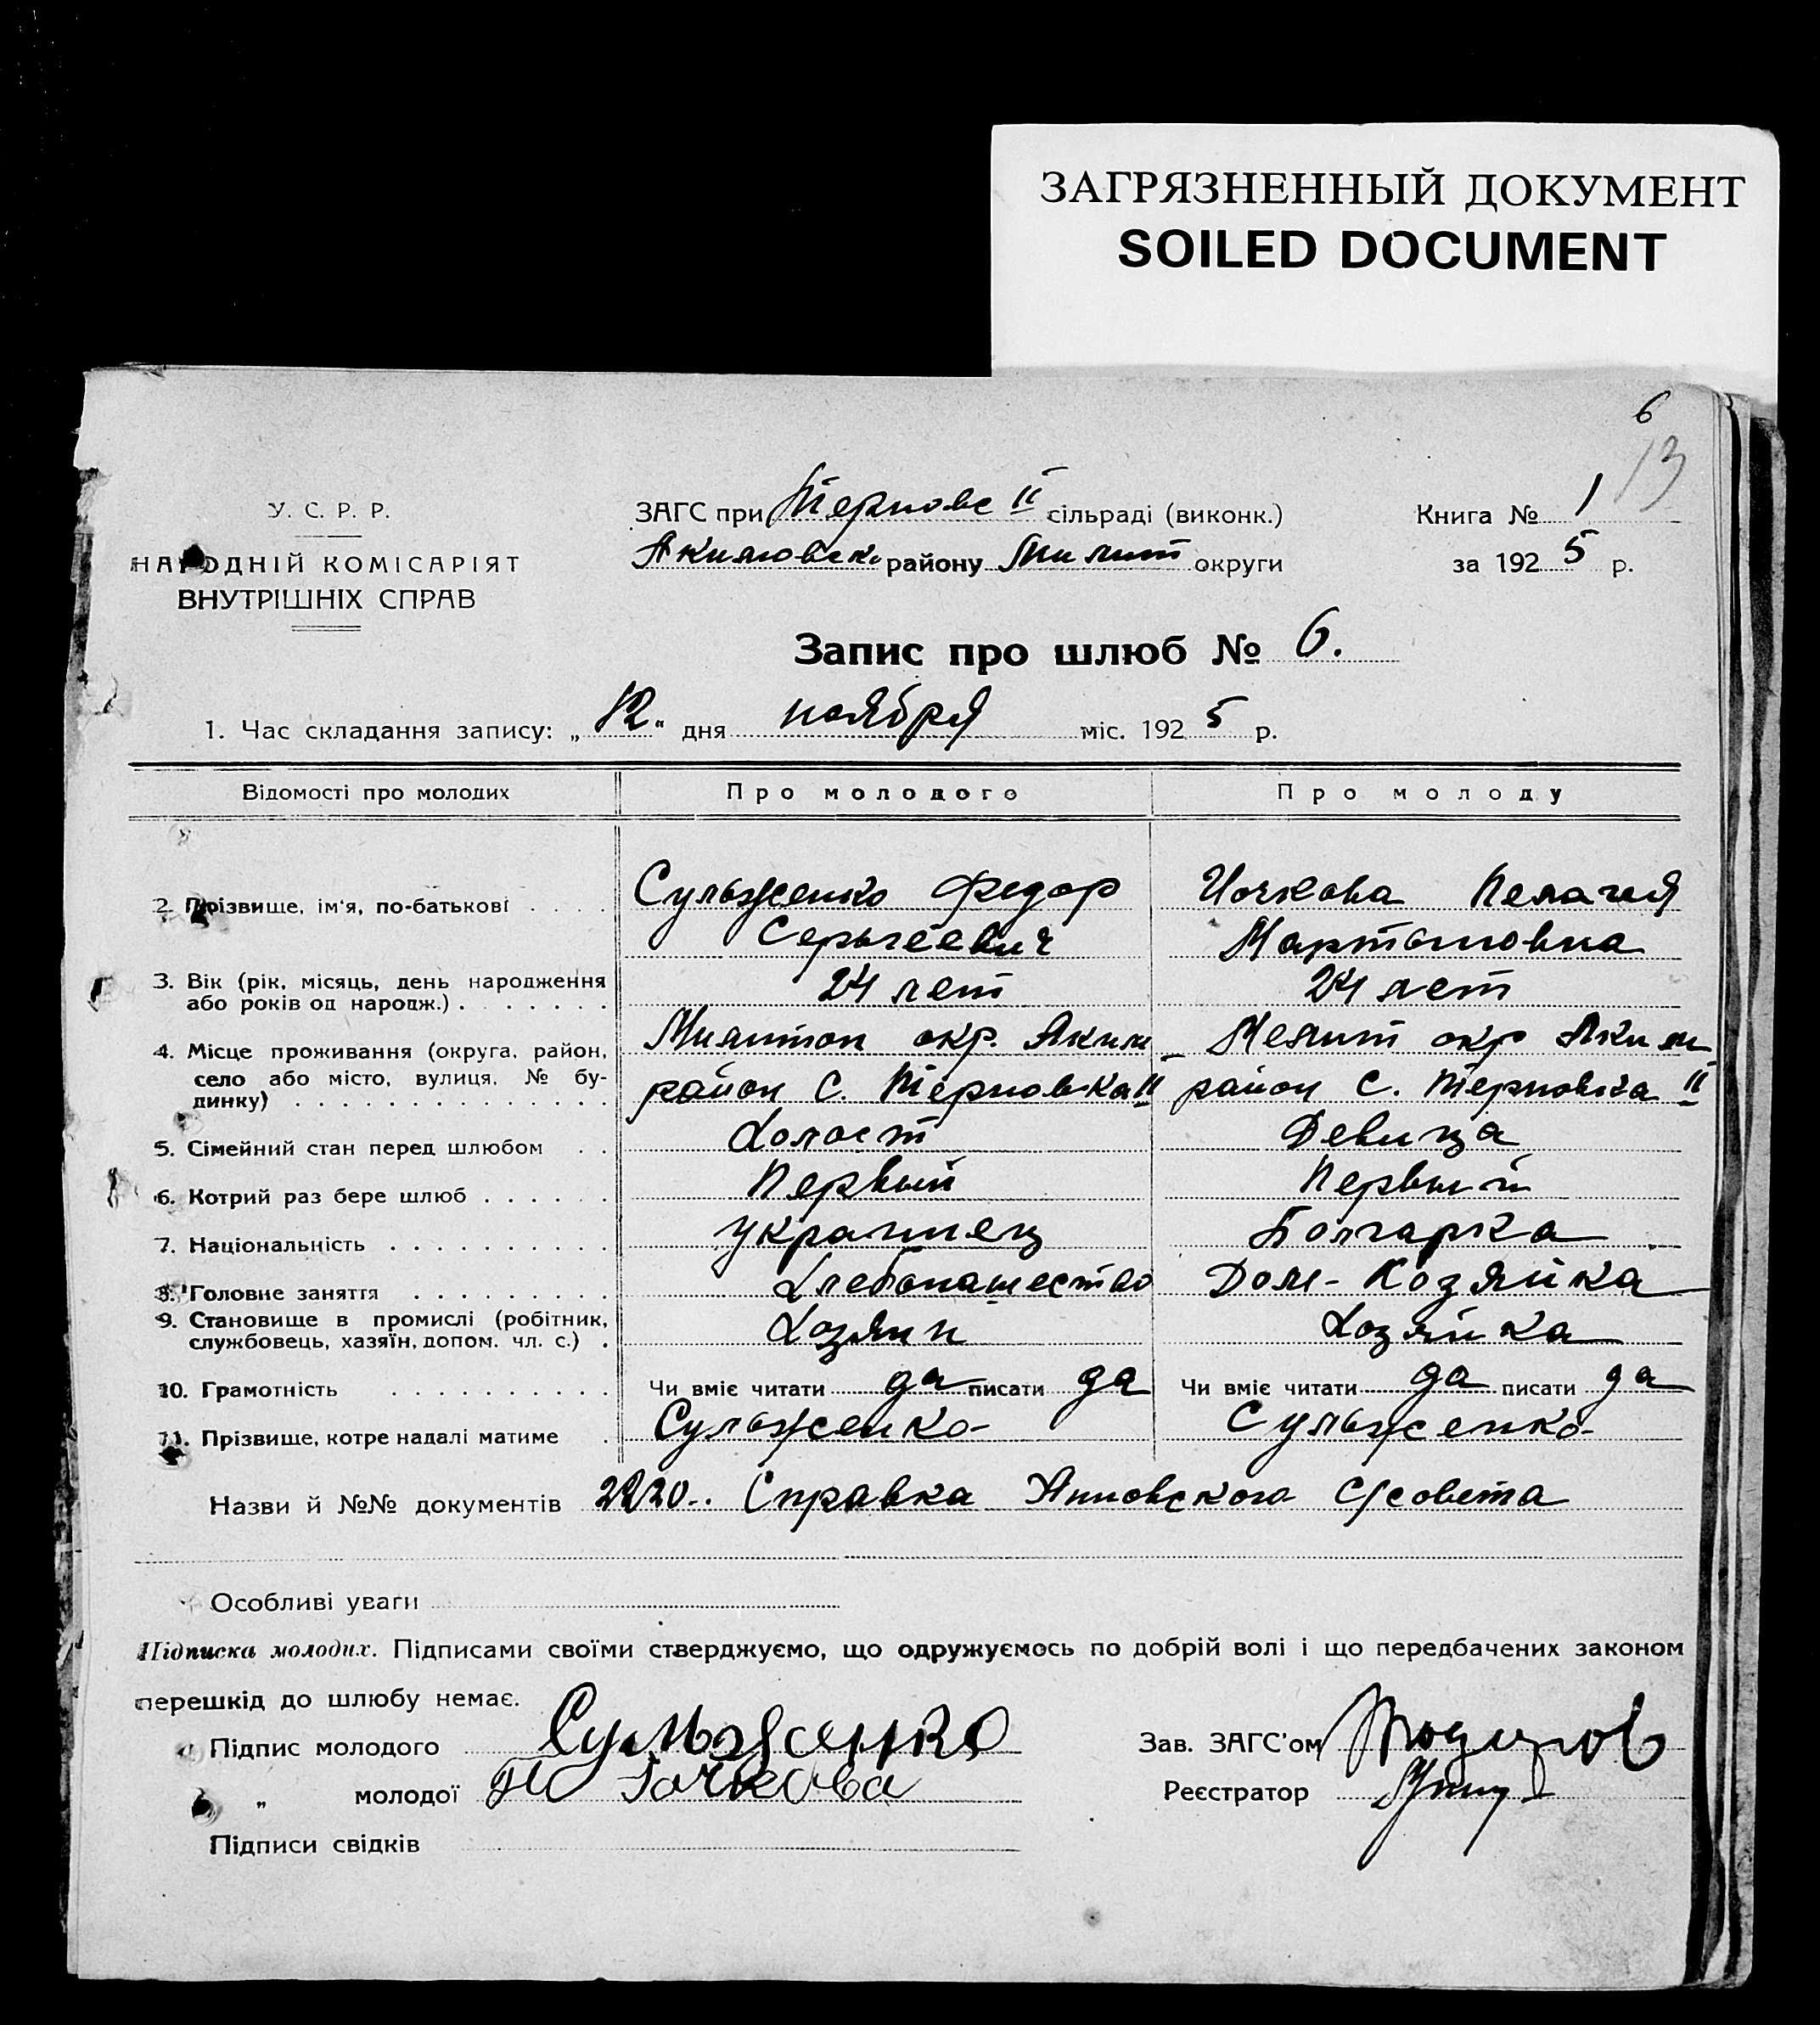 ЗАГРЯЗНЕННЫЙ ДОКУМЕНТ
SOILED DOCUMENT
6
13
У. С. Р. Р.
НАРОДНІЙ КОМІСАРІЯТ
ВНУТРІШНІХ СПРАВ
ЗАГС при Терновс II сільраді (виконк.)
Акимовск. району Милит округи
Книга № 1
за 1925 р.
Запис про шлюб № 6.
1. Час складання запису: „12“ дня ноября міс. 1925 р.
Відомості про молодих Про молодого Про молоду
2. Прізвище, ім'я, по-батькові . . . . Сульженко Федор Иочкова Пелагея
Сергеевич Мартыновна
3. Вік (рік, місяць, день народження або років од народж.) . . . . . . . 24 лет 24 лет
4. Місце проживання (округа, район, село або місто, вулиця, № будинку) . . . . . . . . . . . . . . Милитоп окр. Аким Мелит окр Аким
район С. Терновка II район С. Терновка II
5. Сімейний стан перед шлюбом . . Холост Девица
6. Котрий раз бере шлюб . . . . . . Первый Первый
7. Національність . . . . . . . . . . Украинец Болгарка
8. Головне заняття . . . . . . . . . Хлебопашество Дом-Хозяйка
9. Становище в промислі (робітник, службовець, хазяїн, допом. чл. с.) . Хозяин Хозяйка
10. Грамотність . . . . . . . . . . Чи вміє читати да писати да Чи вміє читати да писати да
11. Прізвище, котре надалі матиме . Сульженко Сульженко
Назви й №№ документів 2220.. Справка С/совета
Особливі уваги
Підписка молодих. Підписами своїми стверджуємо, що одружуємось по добрій волі і що передбачених законом
перешкід до шлюбу немає.
Підпис молодого Сульженко Зав. ЗАГС'ом
„ молодої Гочкова Реєстратор
Підписи свідків